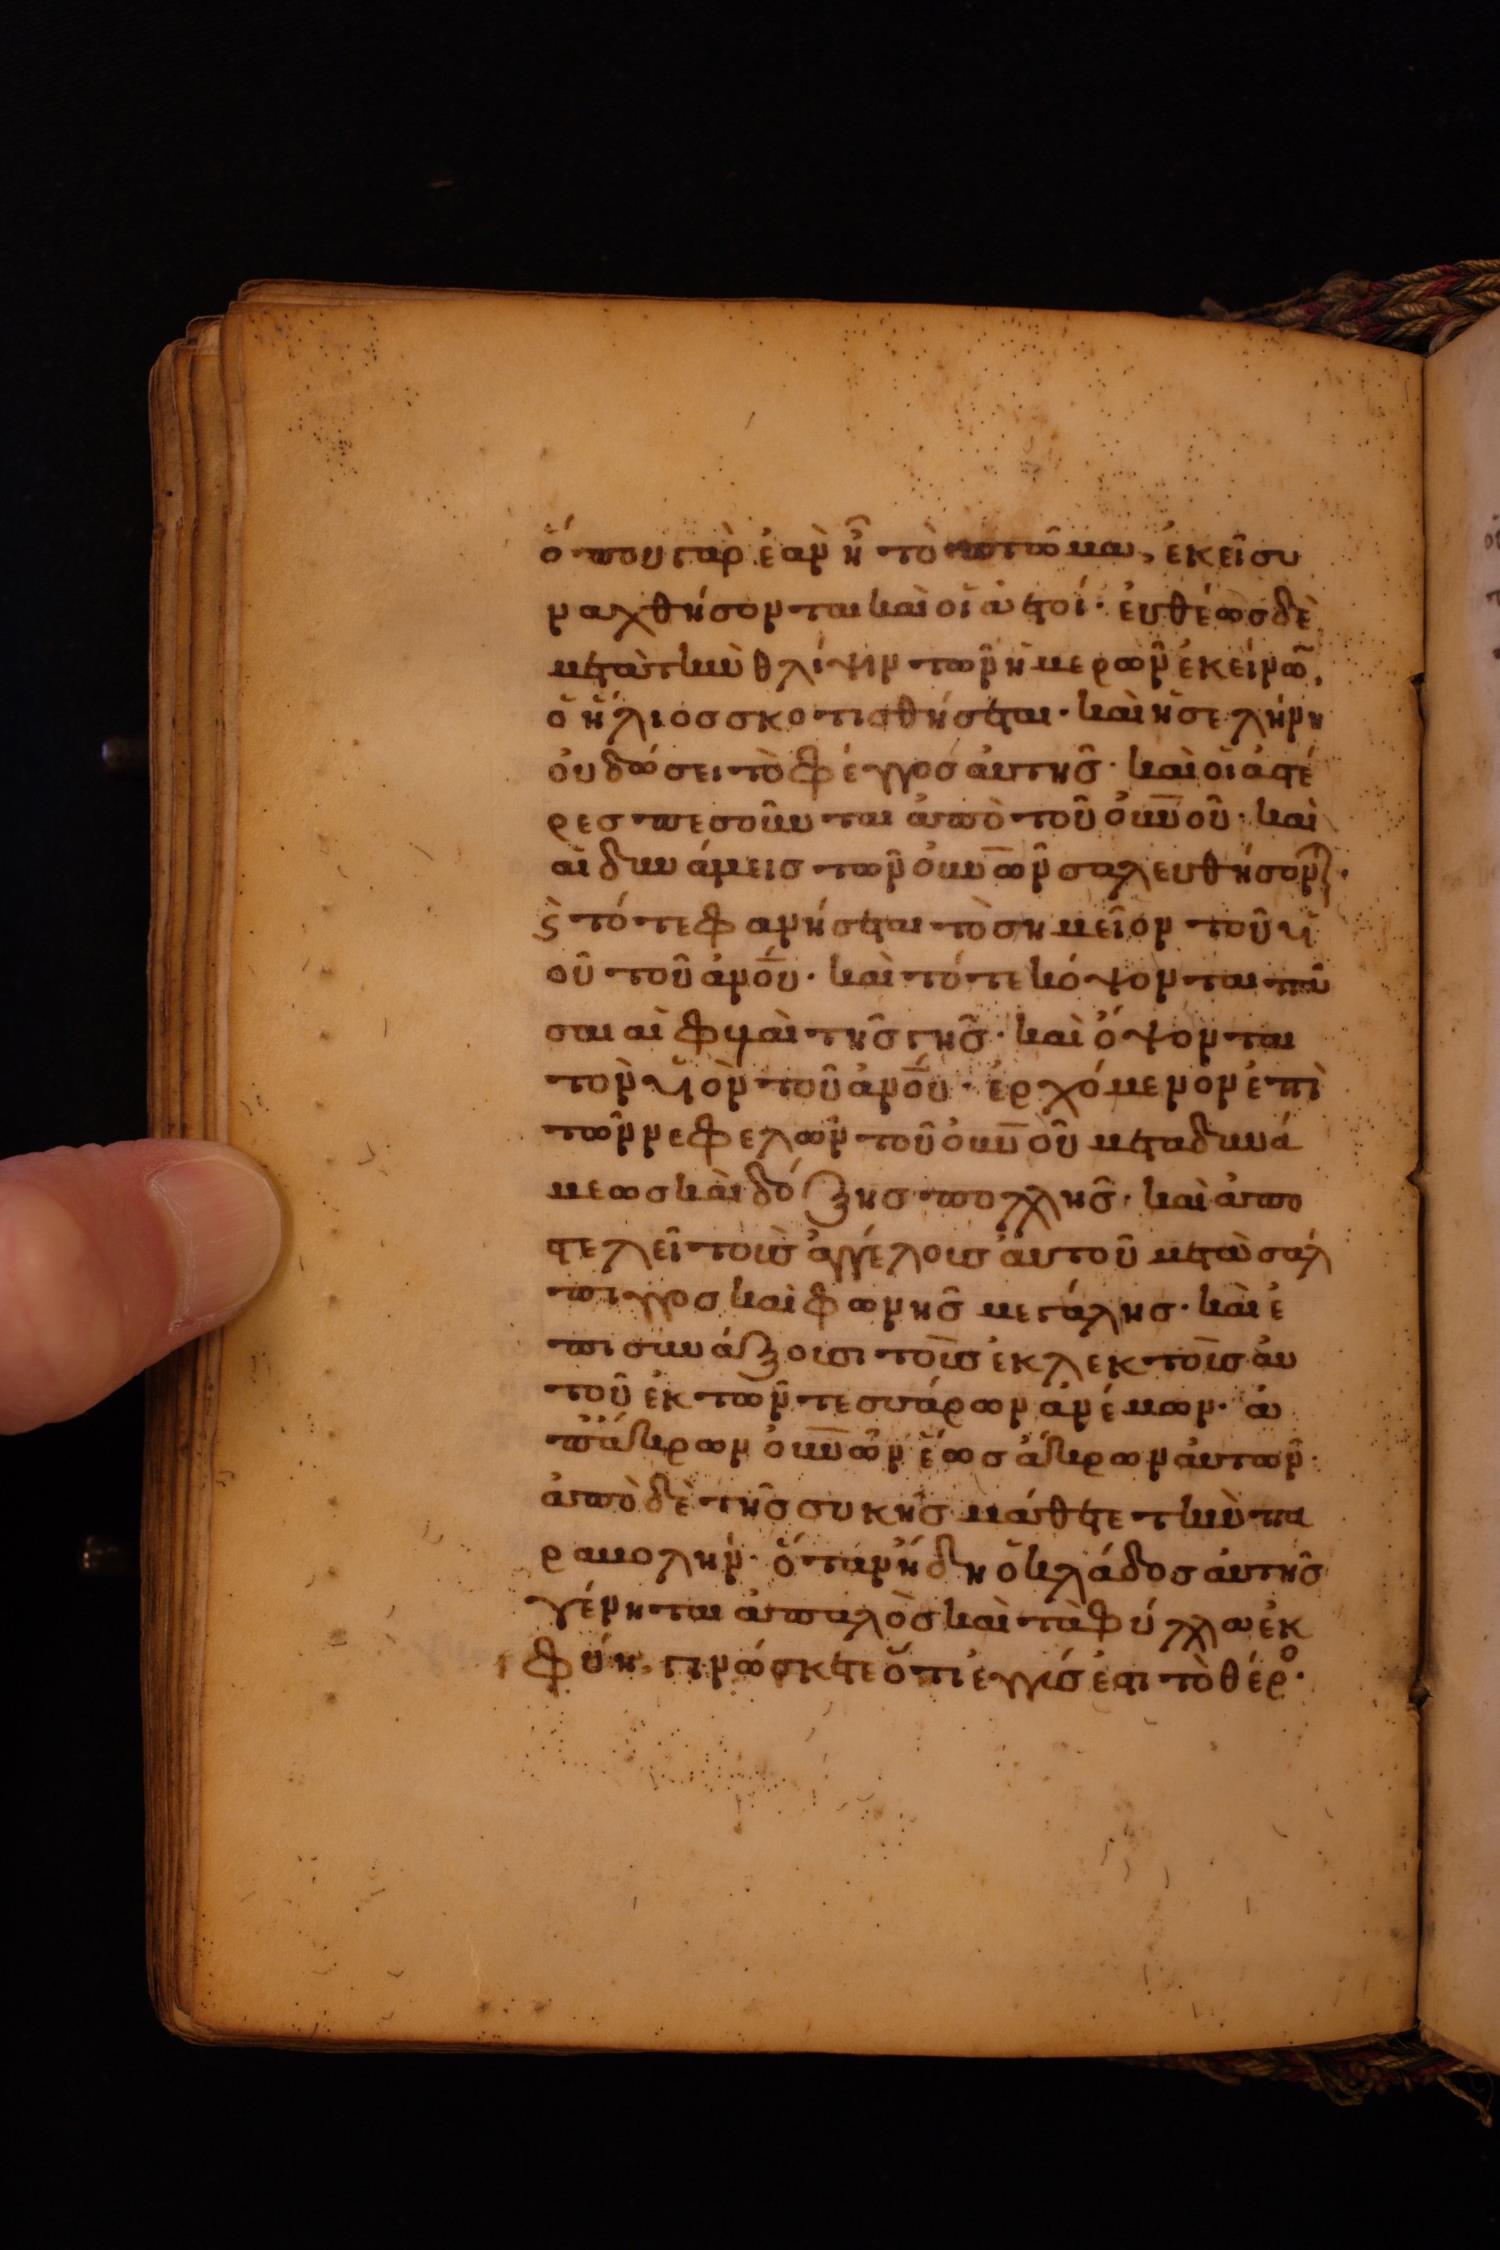 ὅπου γὰρ ἐὰν ἦ τὸ πτῶμα, ἐκεῖ συ
ναχθήσονται καὶ οἱ ἀετοί· ἐυθέως δὲ
μετὰ τὴν θλίψιν τῶν ἡμερῶν ἐκείνῶ,
ὁ ἥλιος σκοτισθήσεται· καὶ ἡ σελήνη
οὐ δώσει τὸ φέγγος ἀυτῆς· καὶ οἱ ἀστέ
ρες πεσοῦνται ἀπὸ τοῦ οὐν̅οῦ· καὶ
αἱ δυνάμεις τῶν οὐν̅ῶν σαλευθήσοντ·
ϛ̀ τότε φανήσεται τὸ σημεῖον τοῦ υἱ
οῦ τοῦ ἀνο̅υ· καὶ τότε κόψονται πᾶ
σαι αἱ φυλαὶ τῆς γῆς· καὶ ὄψονται
τὸν υἱὸν τοῦ ἀνο̅υ· ἐρχόμενον ἐπὶ
τῶν νεφελῶν τοῦ οὐν̅οῦ μετὰ δυνά
μεως καὶ δόξης πολλῆς· καὶ ἀπο
στελεῖ τοὺς ἀγγέλους ἀυτοῦ μετὰ σάλ
πιγγος καὶ φωνῆς μεγάλης· καὶ ἐ
πισυνάξουσι τοὺς ἐκλεκτοὺς ἀυ
τοῦ ἐκ τῶν τεσσάρων ἀνέμων· ἀ
π' ἄκρων οὐν̅ῶν ἕως ἄκρων ἀυτῶν·
ἀπὸ δὲ τῆς συκῆς μάθετε τὴν πα
ραβολήν· ὅταν ἤδη ὁ κλάδος ἀυτῆς
γένηται ἁπαλὸς καὶ τὰ φύλλα ἐκ
φύη, γινώσκετε ὅτι ἐγγὺς ἐστι τὸ θέρο·